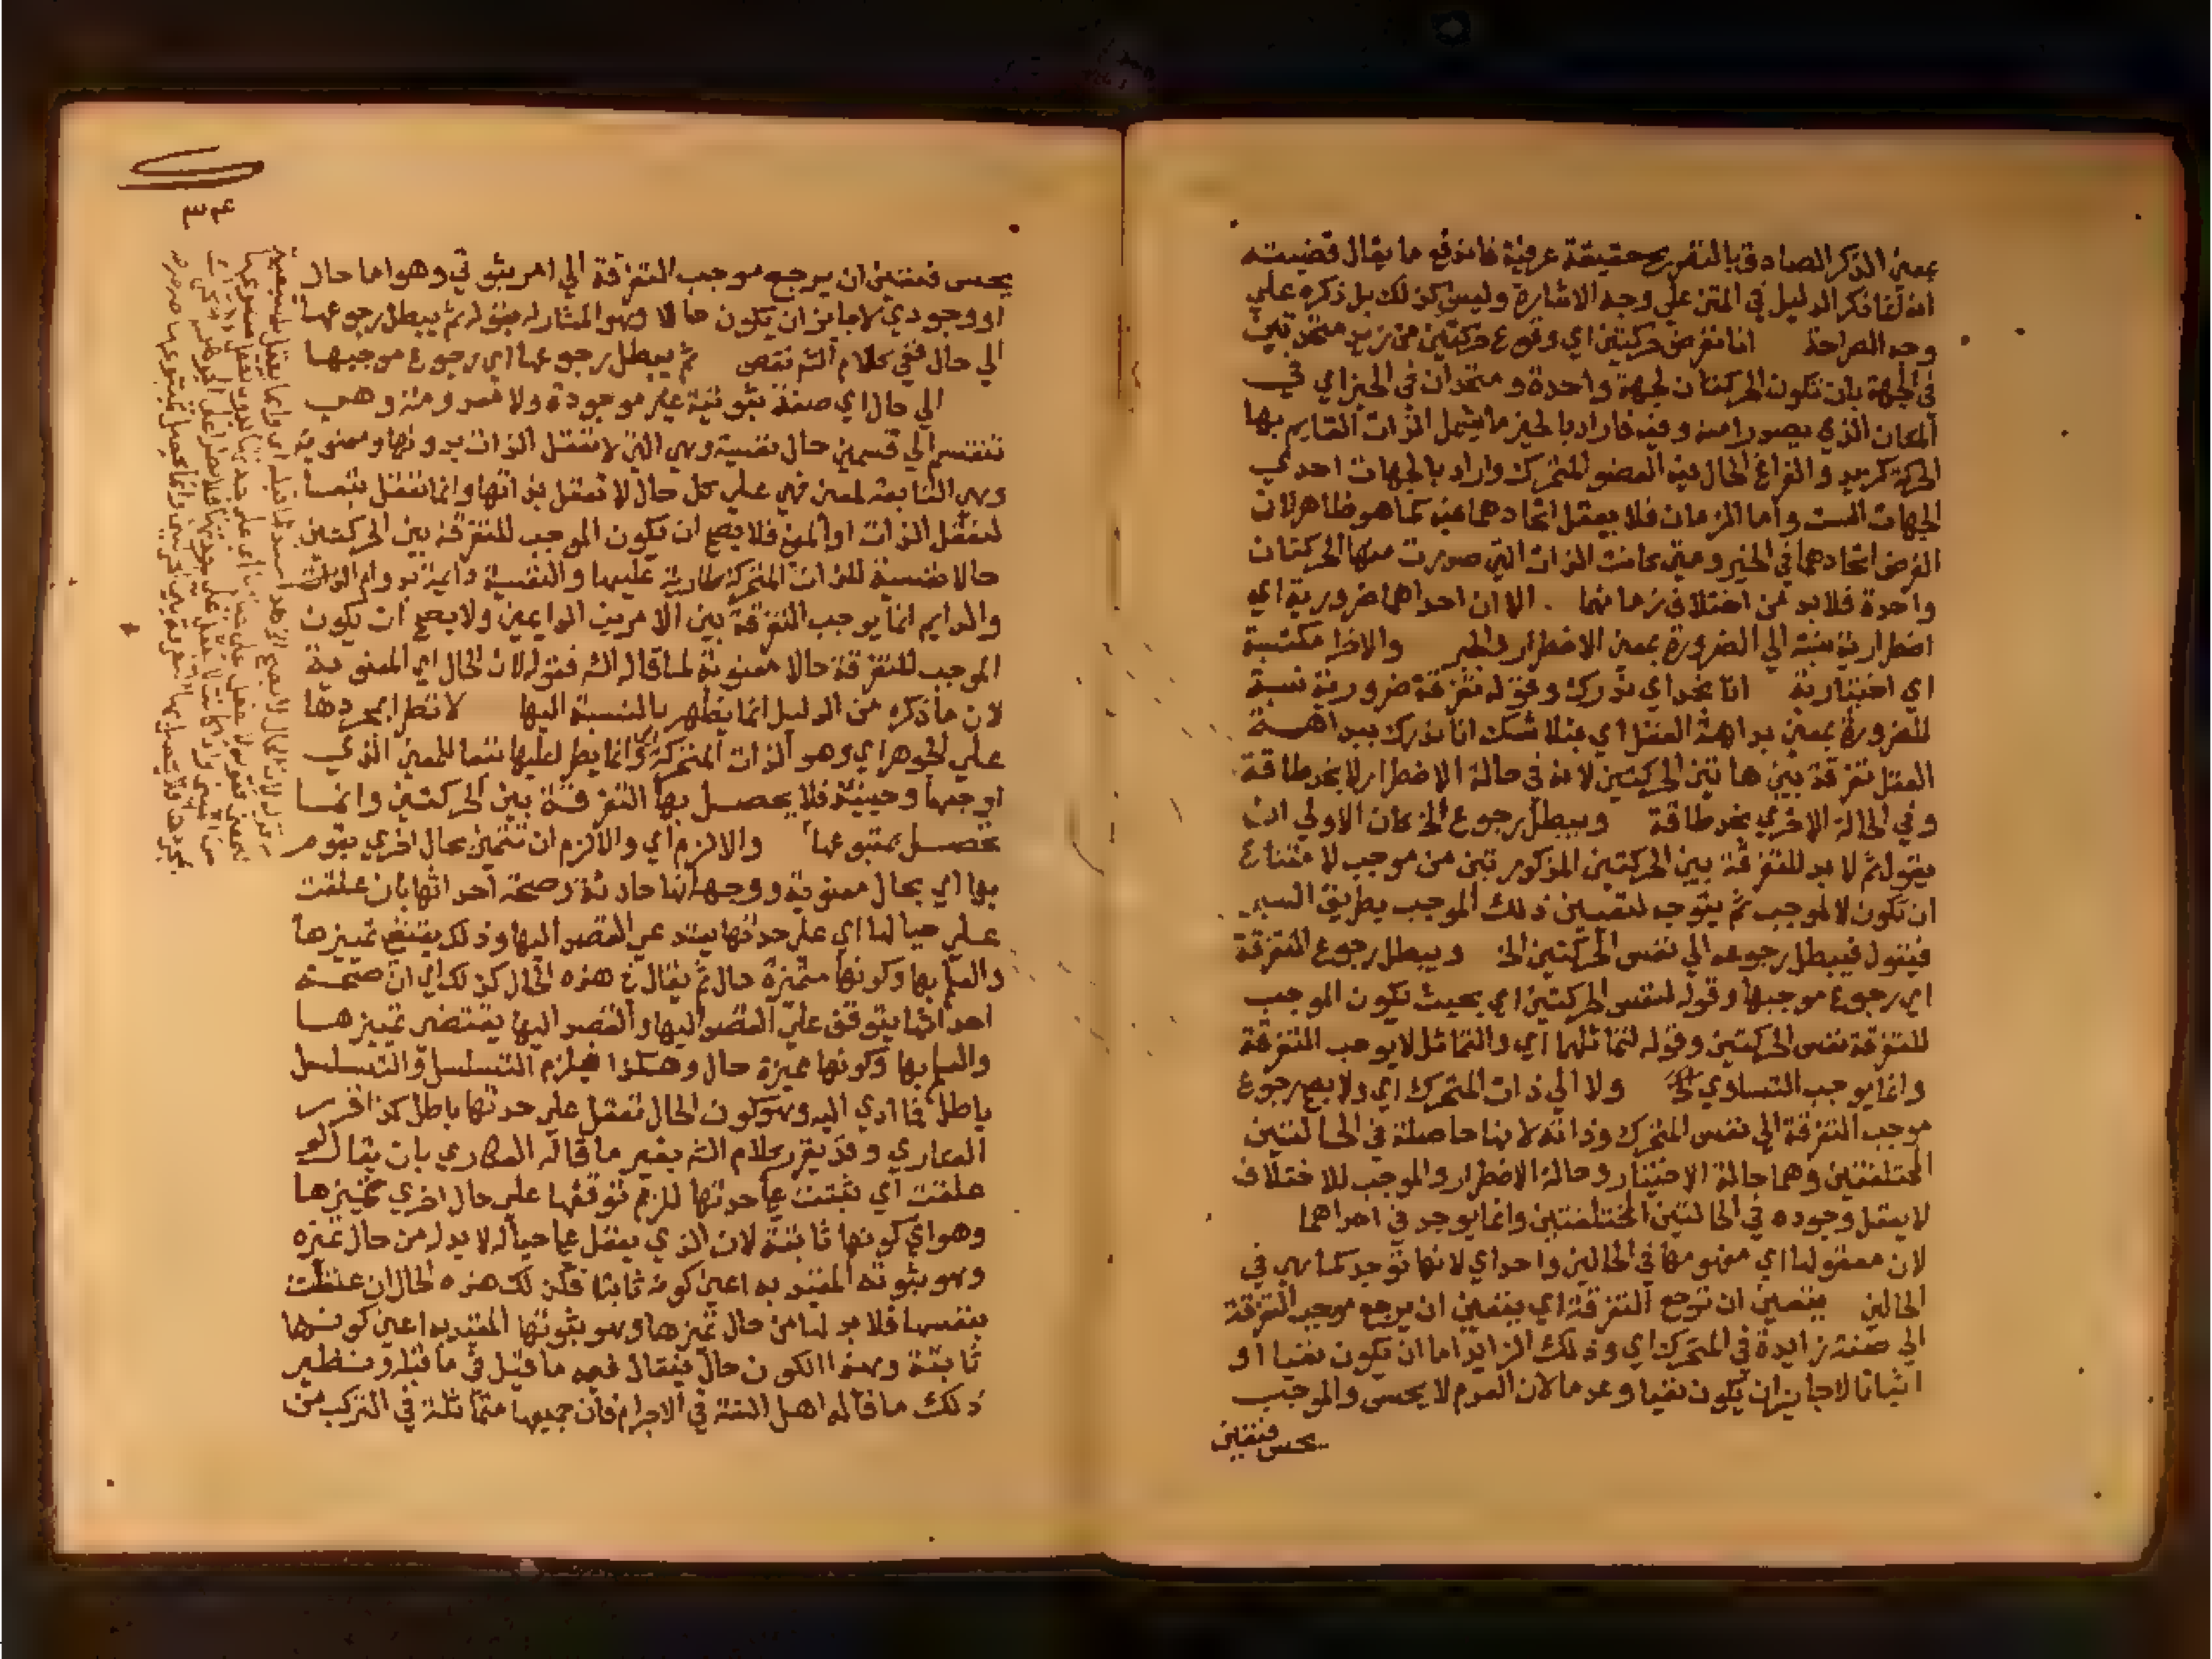 بمعنى الذكر الصادق بالتقرير حقيقة عرفية فاندفع ما يقال قضيته
انه لما ذكر الدليل في المتن علي وجه الاشارة وليس كذلك بل ذكره علي
وجه الصراحة انا نفرض حركتين اي وقوع حركتين من زيد متحدتين
في الجهة بان تكون الحركتان لجهة واحدة ومتحدان في الحيز اي في
المكان الذي يصدرا منه وفيه فاراد بالحيز ما يشمل الذات القايم بها
الحركة كزيد والفراغ الحال فيه العضو المتحرك واراد بالجهات احدي
الجهات الست واما الزمان فلا يعقل اتحادهما فيه كما هو ظاهر لان
الفرض اتحادهما في الحيز ومتي كانت الذات التي صدرت منها الحركتان
واحدة فلا بد من اختلاف زمانهما الا ان احداهما ضرورية اي
اضطرارية نسبة الي الضرورة بمعني الاضطرار والجبر والاخرا مكتسبة
اي اختيارية انا نجد اي ندرك وقوله تفرقة ضرورية نسبة
للضرورة بمعني بداهة العقل اي بلا شك انا ندرك ببداهة
العقل تفرقة بين هاتين الحركتين لانه في حالة الاضطرار لا يجد طاقة
وفي الحالة الاخري يجد طاقة ويبطل رجوع الخ كان الاولي ان
يقول ثم لا بد للتفرقة بين الحركتين المذكورتين من موجب لامتناع
ان تكون لا لموجب ثم يتوجه لتعيين ذلك الموجب بطريق السبر
فيقول فيبطل رجوعه الي نفس الحركتين الخ ويبطل رجوع التفرقة
اي رجوع موجبها وقوله لنفس الحركتين اي بحيث تكون الموجب
للتفرقة نفس الحركتين وقوله لتماثلهما اي والتماثل لا يوجب التفرقة
وانما يوجب التساوي ولا الي ذات المتحرك اي ولا يصح رجوع
موجب التفرقة الي نفس المتحرك وذاته لانها حاصلة في الحالتين
المختلفتين وهما حالة الاختيار وحالة الاضطرار والموجب للاختلاف
لا يعقل وجوده في الحالتين المختلفتين وانما يوجد في احداهما
لان معقولها اي مفهومها في الحالين واحد اي لانها توجد كما هي في
الحالين يتعين ان ترجع التفرقة اي يتعين ان يرجع موجب التفرقة
الي صفة زايدة في المتحرك اي وذلك الزايد اما ان تكون نفيا او
اثباتا لا جايز ان يكون نفيا وعدما لان العدم لا يحس والموجب
يحس فتعين
٣٤
يحس فتعين ان يرجع موجب التفرقة الي امر ثبوتي وهو اما حال
او وجودي لا جايز ان يكون حالا وهو المشار له بقوله ثم يبطل رجوعها
الي حال ففي كلام الش نقص ثم يبطل رجوعها اي رجوع موجبها
الي حال اي صفة ثبوتية غير موجودة ولا معدومة وهي
تنقسم الي قسمين حال نفسية وهي التي لا تعقل الذات بدونها ومعنوية
وهي التابعة لمعني فهي علي كل حال لا تعقل بذاتها وانما تعقل تبعا
لتعقل الذات او المعني فلا يصح ان تكون الموجب للتفرقة بين الحركتين
حالا نفسية للذات المتحركة طارية عليها والنفسية دايمة بدوام الذات
والدايم انما يوجب التفرقة بين الامرين الدايمين ولا يصح ان تكون
الموجب للتفرقة حالا معنوية لما قاله الش فقوله لان الحال اي المعنوية
لان ما ذكره من الدليل انما يظهر بالنسبة اليها لا تطرا بمجردها
علي الجوهر اي وهو الذات المتحركة وانما يطرا عليها تبعا للمعني الذي
اوجبها وحينئذ فلا يحصل بها التفرقة بين الحركتين وانما
تحصل بمتبوعها والا لزم اي والا لزم ان تتميز بحال اخري يقوم
بها اي بحال معنوية ووجهه انها حادثة وصحة احداثها بان عقلت
علي حيالها اي علي حدتها يستدعي القصد اليها وذلك يقتضي تمييزها
والعلم بها وكونها متميزة حال ثم يقال في هذه الحال كذلك اي ان صحة
احداثها يتوقف علي القصد اليها والقصد اليها يقتضي تمييزها
والعلم بها وكونها مميزة حال وهكذا فيلزم التسلسل والتسلسل
باطل فما ادي اليه وهو كون الحال تعقل علي حدتها باطل كذا قرر
العكاري وقد يقرر كلام الش بغير ما قاله العكاري بان يقال لو
عقلت اي ثبتت علي حدتها للزم توقفها علي حال اخري تميزها
وهو اي كونها ثابتة لان الذي يعقل علي حياله لا بد له من حال تميزه
وهو ثبوته المفيد به اعني كونه ثابتا فكذلك هذه الحال ان عقلت
بنفسها فلا بد لها من حال تميزها وهو ثبوتها المفيد به اعني كونها
ثابتة وهذا الكون حال فيقال فيه ما قيل في ما قبله ونظير
ذلك ما قاله اهل السنة في الاجرام فان جميعها متماثلة في التركب من